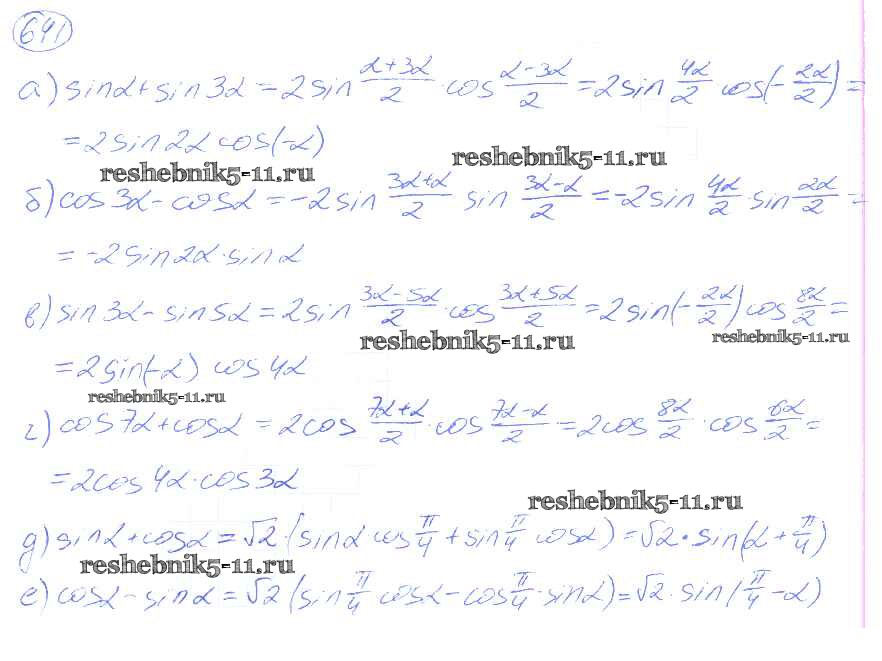 641
а) sinα + sin3α = 2sin (α+3α)/2 · cos (α−3α)/2 = 2sin 4α/2 cos(−2α/2) =
= 2sin2α cos(−α)
reshebnik5-11.ru reshebnik5-11.ru
б) cos3α − cosα = −2sin (3α+α)/2 sin (3α−α)/2 = −2sin 4α/2 · sin 2α/2 =
= −2sin2α · sinα
в) sin3α − sin5α = 2sin (3α−5α)/2 · cos (3α+5α)/2 = 2sin(−2α/2) cos 8α/2 =
reshebnik5-11.ru reshebnik5-11.ru
= 2sin(−α) cos4α
reshebnik5-11.ru
г) cos7α + cosα = 2cos (7α+α)/2 · cos (7α−α)/2 = 2cos 8α/2 · cos 6α/2 =
= 2cos4α · cos3α
reshebnik5-11.ru
д) sinα + cosα = √2 · (sinα cos π/4 + sin π/4 cosα) = √2 · sin(α + π/4)
reshebnik5-11.ru
е) cosα − sinα = √2 (sin π/4 cosα − cos π/4 · sinα) = √2 · sin(π/4 − α)